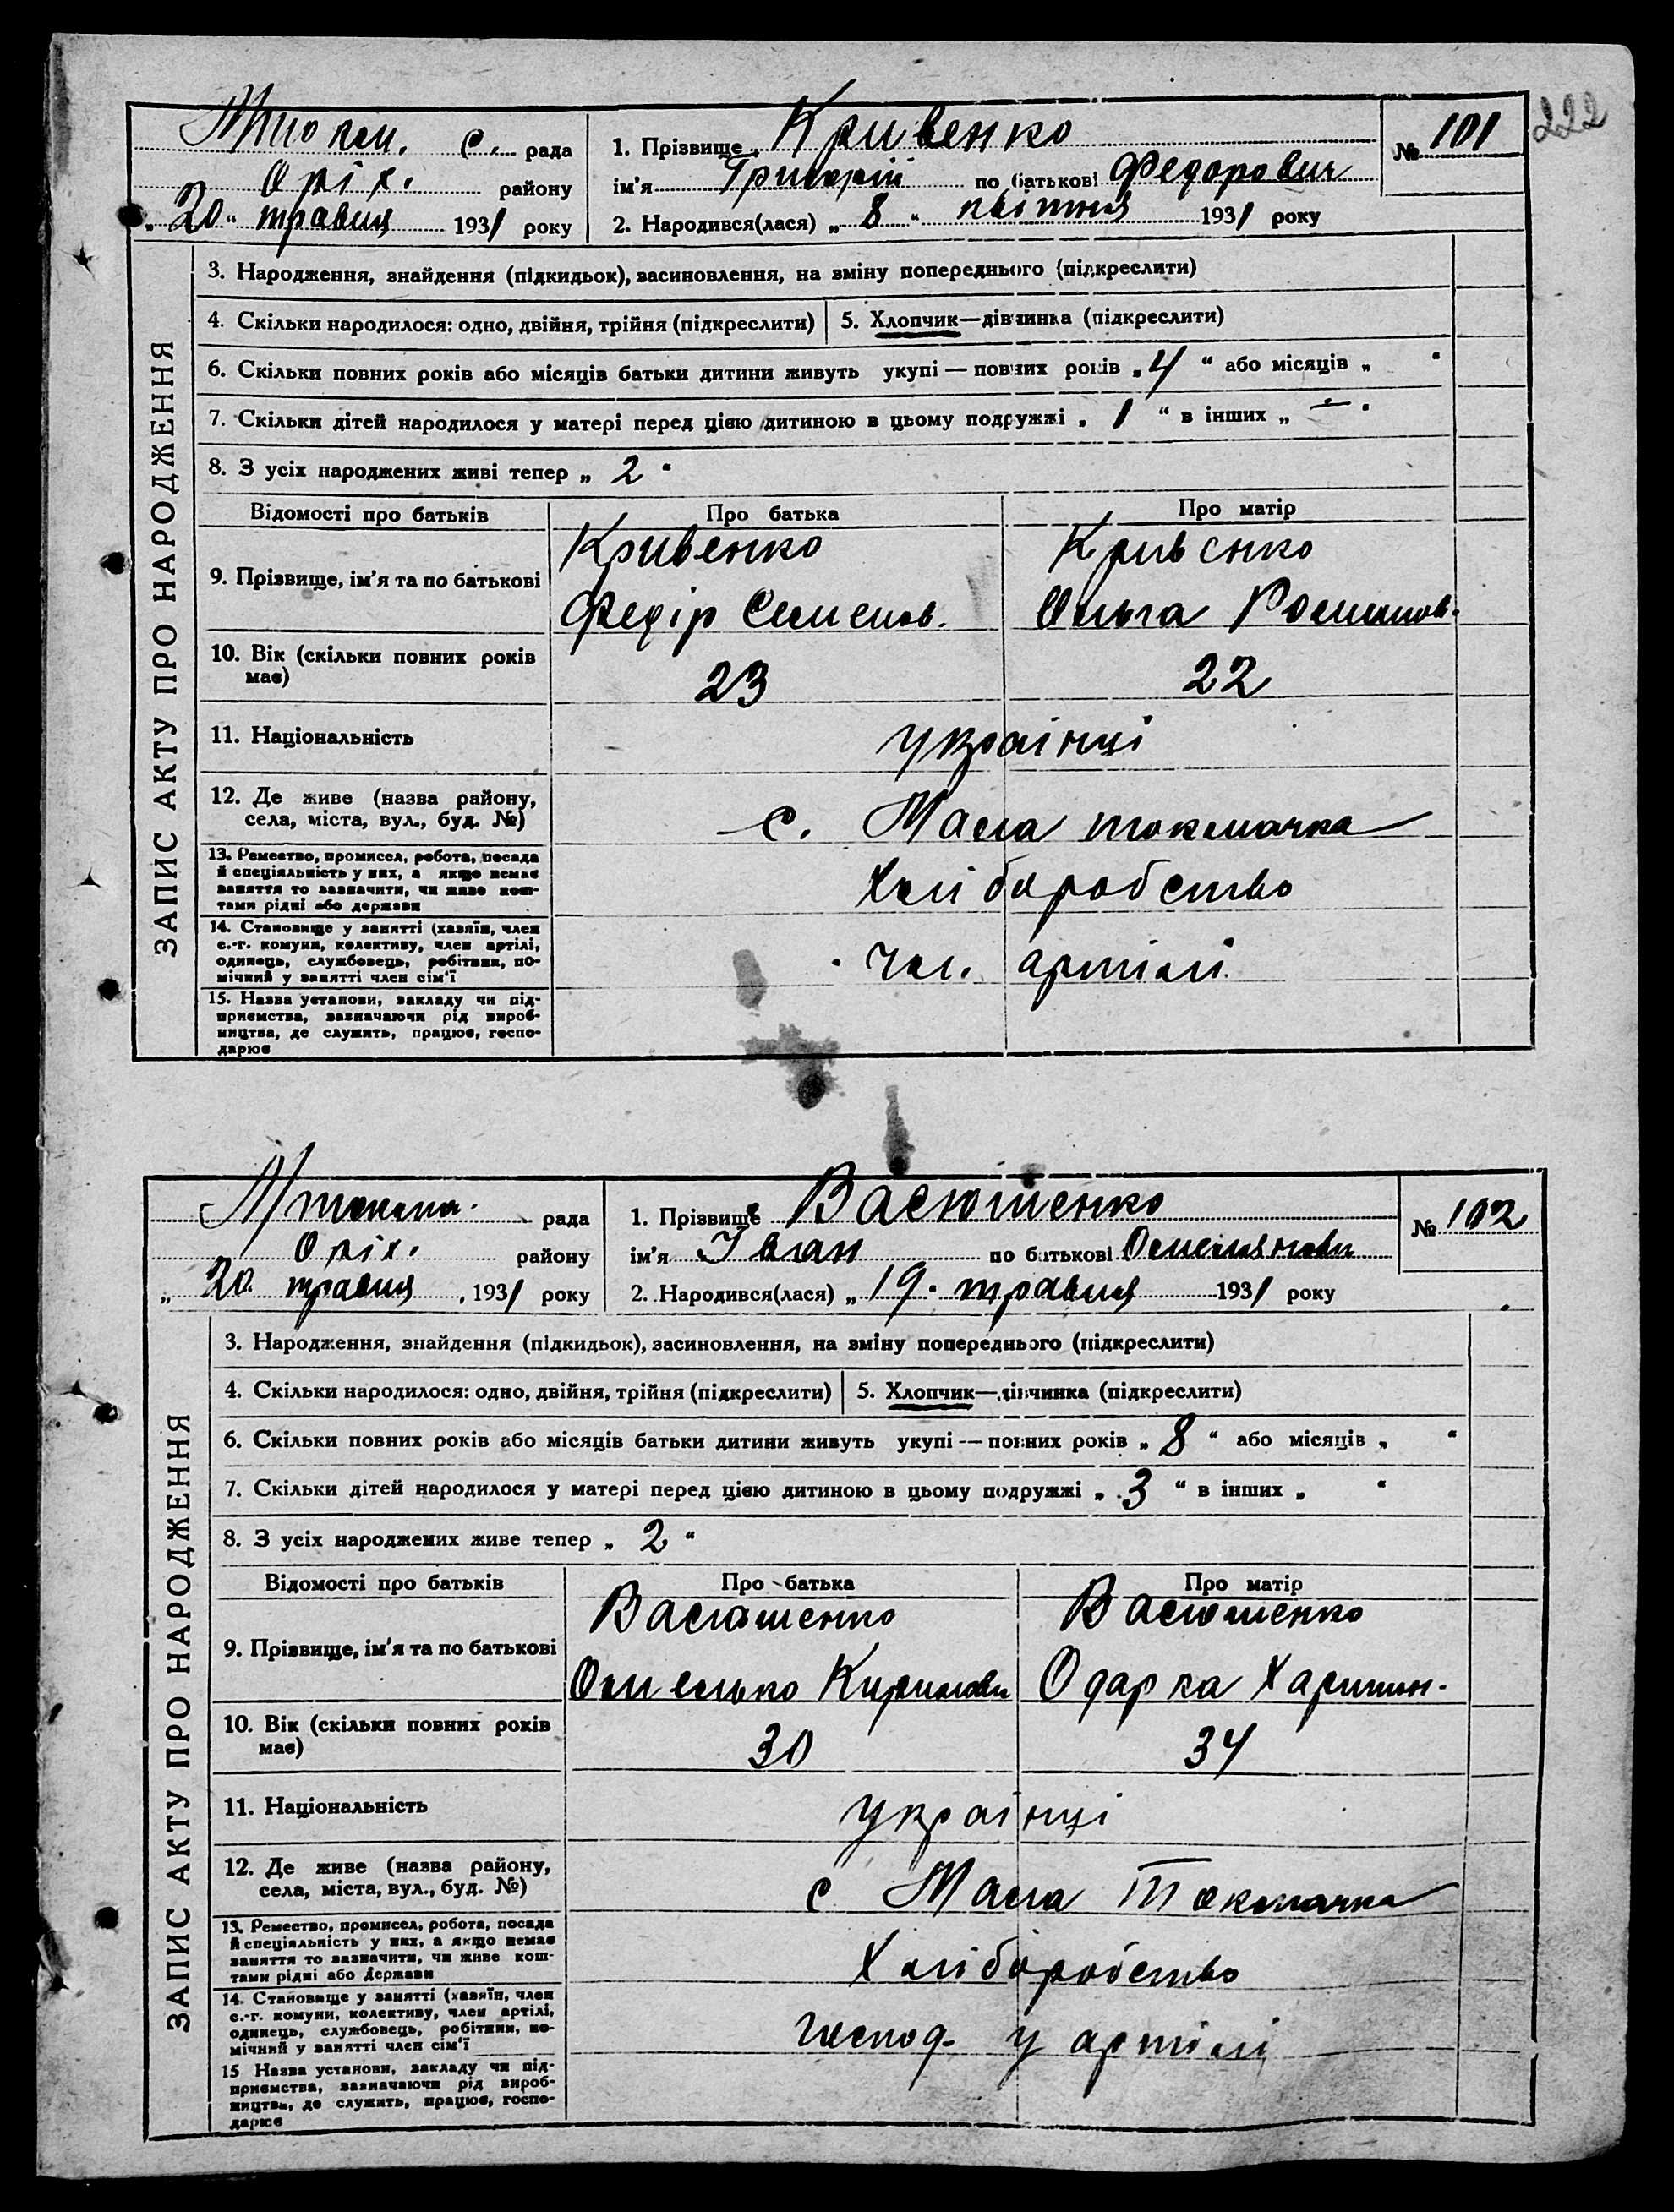 222
Мток. с. рада
Оріх. району
„20“ травня 1931 року
1. Прізвище Кривенко
ім'я Григорій по батькові Федорович
2. Народився(лася) „8“ квітня 1931 року
№ 101
ЗАПИС АКТУ ПРО НАРОДЖЕННЯ
3. Народження, знайдення (підкидьок), васиновлення, на зміну попереднього (підкреслити)
4. Скільки народилося: одно, двійня, трійня (підкреслити)
5. Хлопчик—дівчинка (підкреслити)
6. Скільки повних років або місяців батьки дитини живуть укупі — повних років „4“ або місяців „ “
7. Скільки дітей народилося у матері перед цією дитиною в цьому подружжі „1“ в інших „—“
8. З усіх народжених живі тепер „2“
Відомості про батьків
Про батька
Про матір
9. Прізвище, ім'я та по батькові
Кривенко
Федір Семенов.
Кривенко
Ольга Романов.
10. Вік (скільки повних років
має)
23
22
11. Національність
українці
12. Де живе (назва району,
села, міста, вул., буд. №)
с. Мала токмачка
13. Ремество, промисел, робота, посада
й спеціяльність у них, а якщо немає
заняття то зазначити, чи живе кош-
тами рідні або держави
Хліборобство
14. Становище у занятті (хазяїн, член
с.-г. комуни, колективу, член артілі,
одинець, службовець, робітник, по-
мічний у занятті член сім'ї
Чл. артілі
15. Назва установи, закладу чи під-
приємства, зазначаючи рід вироб-
ництва, де служить, працює, госпо-
дарює
Мтокма. рада
Оріх. району
„20. травня 1931 року
1. Прізвище Васюшенко
ім'я Іван по батькові Омелянови
2. Народився(лася) „19. травня 1931 року
№ 102
ЗАПИС АКТУ ПРО НАРОДЖЕННЯ
3. Народження, знайдення (підкидьок), засиновлення, на зміну попереднього (підкреслити)
4. Скільки народилося: одно, двійня, трійня (підкреслити)
5. Хлопчик—дівчинка (підкреслити)
6. Скільки повних років або місяців батьки дитини живуть укупі — повних років „8“ або місяців „ “
7. Скільки дітей народилося у матері перед цією дитиною в цьому подружжі „3“ в інших „ “
8. З усіх народжених живе тепер „2“
Відомості про батьків
Про батька
Про матір
9. Прізвище, ім'я та по батькові
Васюшенко
Омелько Кирилови
Васюшенко
Одарка Харитин.
10. Вік (скільки повних років
має)
30
34
11. Національність
українці
12. Де живе (назва району,
села, міста, вул., буд. №)
с Мала Токмачка
13. Ремество, промисел, робота, посада
й спеціяльність у них, а якщо немає
заняття то зазначити, чи живе кош-
тами рідні або держави
Хліборобство
14. Становище у занятті (хазяїн, член
с.-г. комуни, колективу, член артілі,
одинець, службовець, робітник, по-
мічний у занятті член сім'ї
господ. у артілі
15 Назва установи, закладу чи під-
приємства, зазначаючи рід вироб-
ництва, де служить, працює, госпо-
дарює